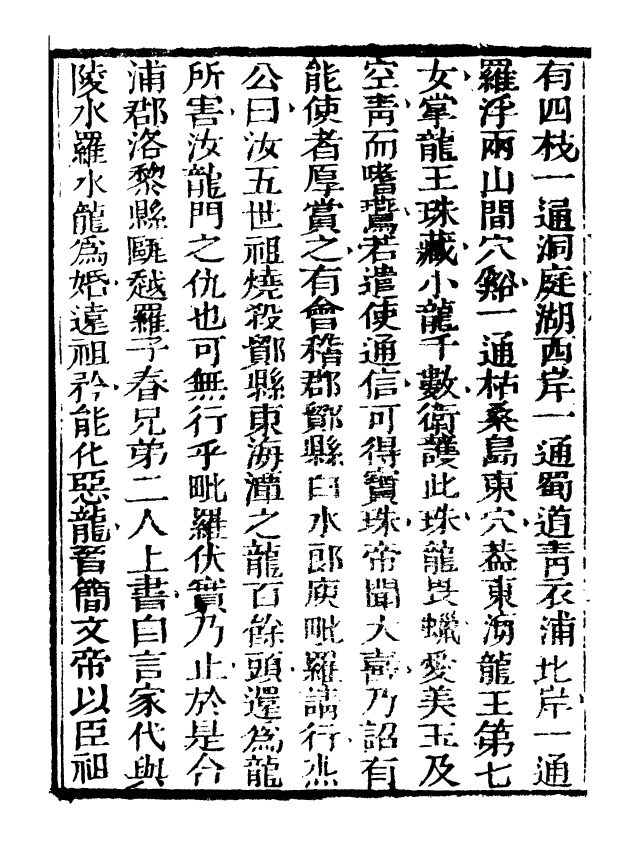 有四枝一通洞庭湖西岸一通蜀道青衣浦北岸一通
羅浮兩山間穴谿一通枯桑島東穴蓋東海龍王第七
女掌龍王珠藏小龍千數衛護此珠龍畏蠟愛美玉及
空青而嗜鷰若遣使通信可得寶珠帝聞大喜乃詔有
能使者厚賞之有會稽郡鄮縣白水郎庾毗羅請行杰
公曰汝五世祖燒殺鄮縣東海潭之龍百餘頭還爲龍
所害汝龍門之仇也可無行乎毗羅伏實乃止於是合
浦郡洛黎縣甌越羅子春兄弟二人上書白言家代與
陵水羅水龍爲婚遠祖矜能化惡龍晉簡文帝以臣祖